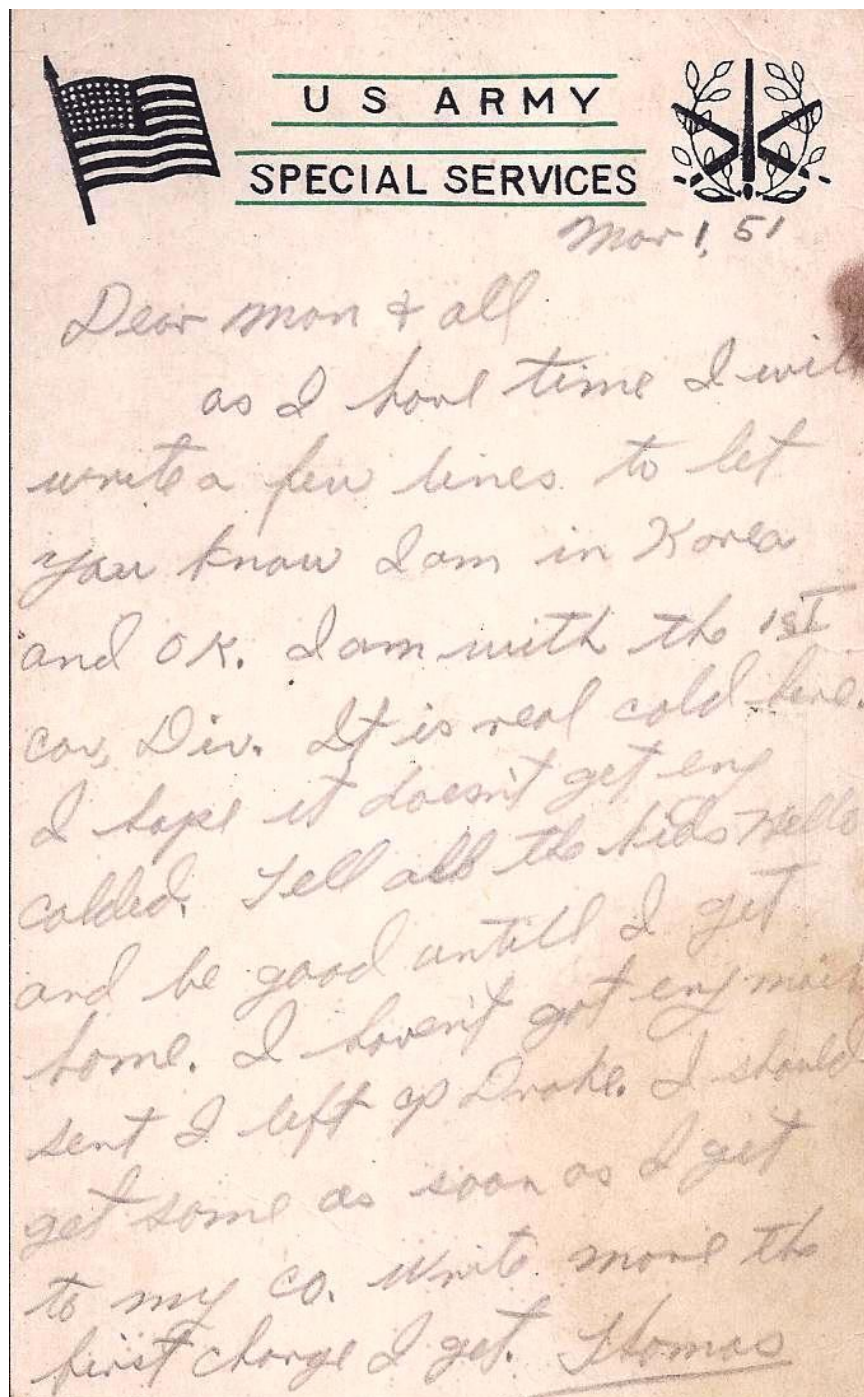 US ARMY
SPECIAL SERVICES
Mar 1, 51
Dear mom & all
as I have time I will
write a few lines to let
you know I am in Korea
and OK. I am with the 1st
cav, Div. It is real cold here.
I hope it doesn't get eny
colded. Tell all the kids Hello
and be good untill I get
home. I haven't got eny mail
sent I left cp Drake. I should
get some as soon as I get
to my co. Write more the
first charge I get. Thomas